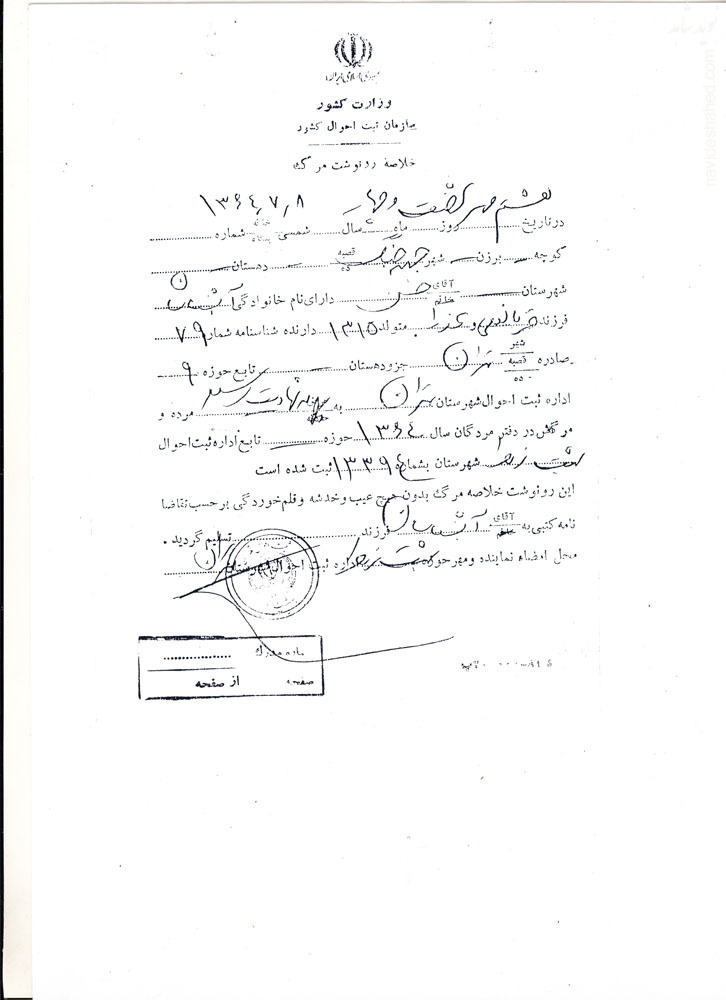 نوید شاهد
navideshahed.com
جمهوری اسلامی ایران
وزارت کشور
سازمان ثبت احوال کشور
خلاصه رونوشت مرگ
هشتم مهر شصت و چهار ۱۳۶۴٫۷٫۸
در تاریخ روز ماه سال شمسی خانه پلاک شماره
کوچه برزن شهر جبهه جنگ قصبه ده دهستان
شهرستان آقای خانم حسن دارای نام خانوادگی
فرزند و عذرا متولد ۱۳۱۵ دارنده شناسنامه شماره ۷۹
صادره شهر قصبه ده تهران جزو دهستان تابع حوزه ۹
اداره ثبت احوال شهرستان تهران به شهادت رسید مرده و
مرگش در دفتر مردگان سال ۱۳۶۴ حوزه تابع اداره ثبت احوال
شهرستان بشماره ثبت شده است
این رونوشت خلاصه مرگ بدون هیچ عیب و خدشه و قلم خوردگی بر حسب تقاضا
نامه کتبی به آقای خانم فرزند تسلیم گردید .
محل امضاء نماینده و مهر حوزه اداره ثبت احوال شهرستان تهران
شماره مدرک
صفحه از صفحه